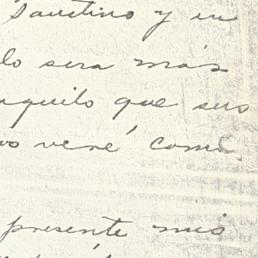 Faustino y en
lo sera más
nquilo que sus
vo veré como
presente mis